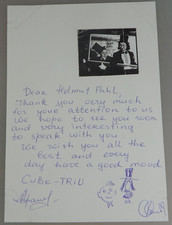 Dear Helmut Pahl,
Thank you very much
for your attention to us
We hope to see you soon
and very interesting
to speak with you
We wish you all the
best and every
day have a good mood
Cube-Trio